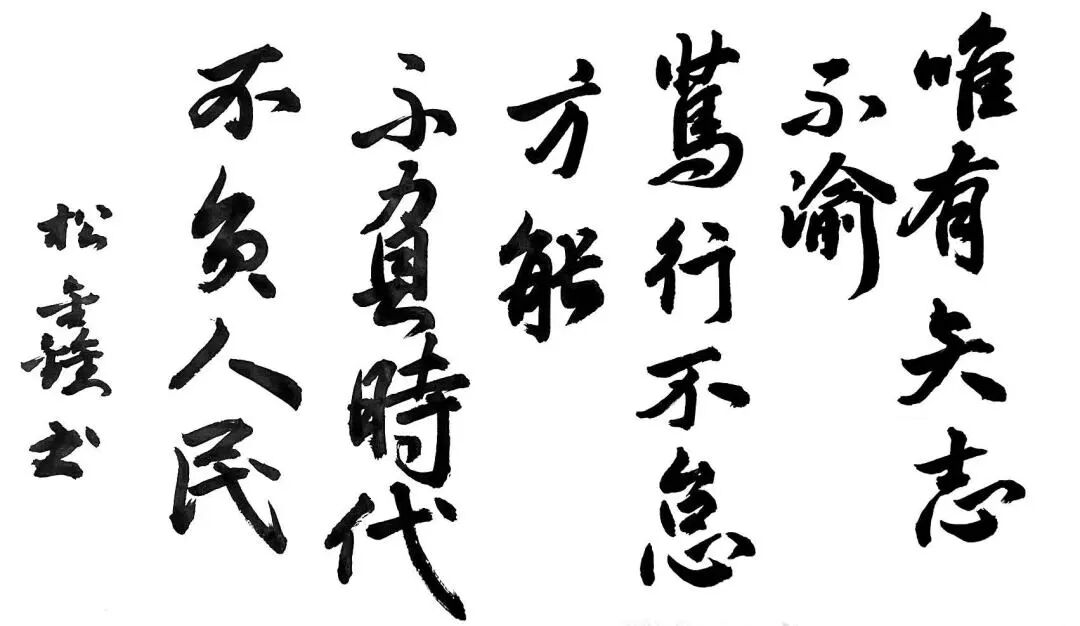 唯有矢志
不渝
篤行不怠
方能
不負時代
不负人民
松鑫书